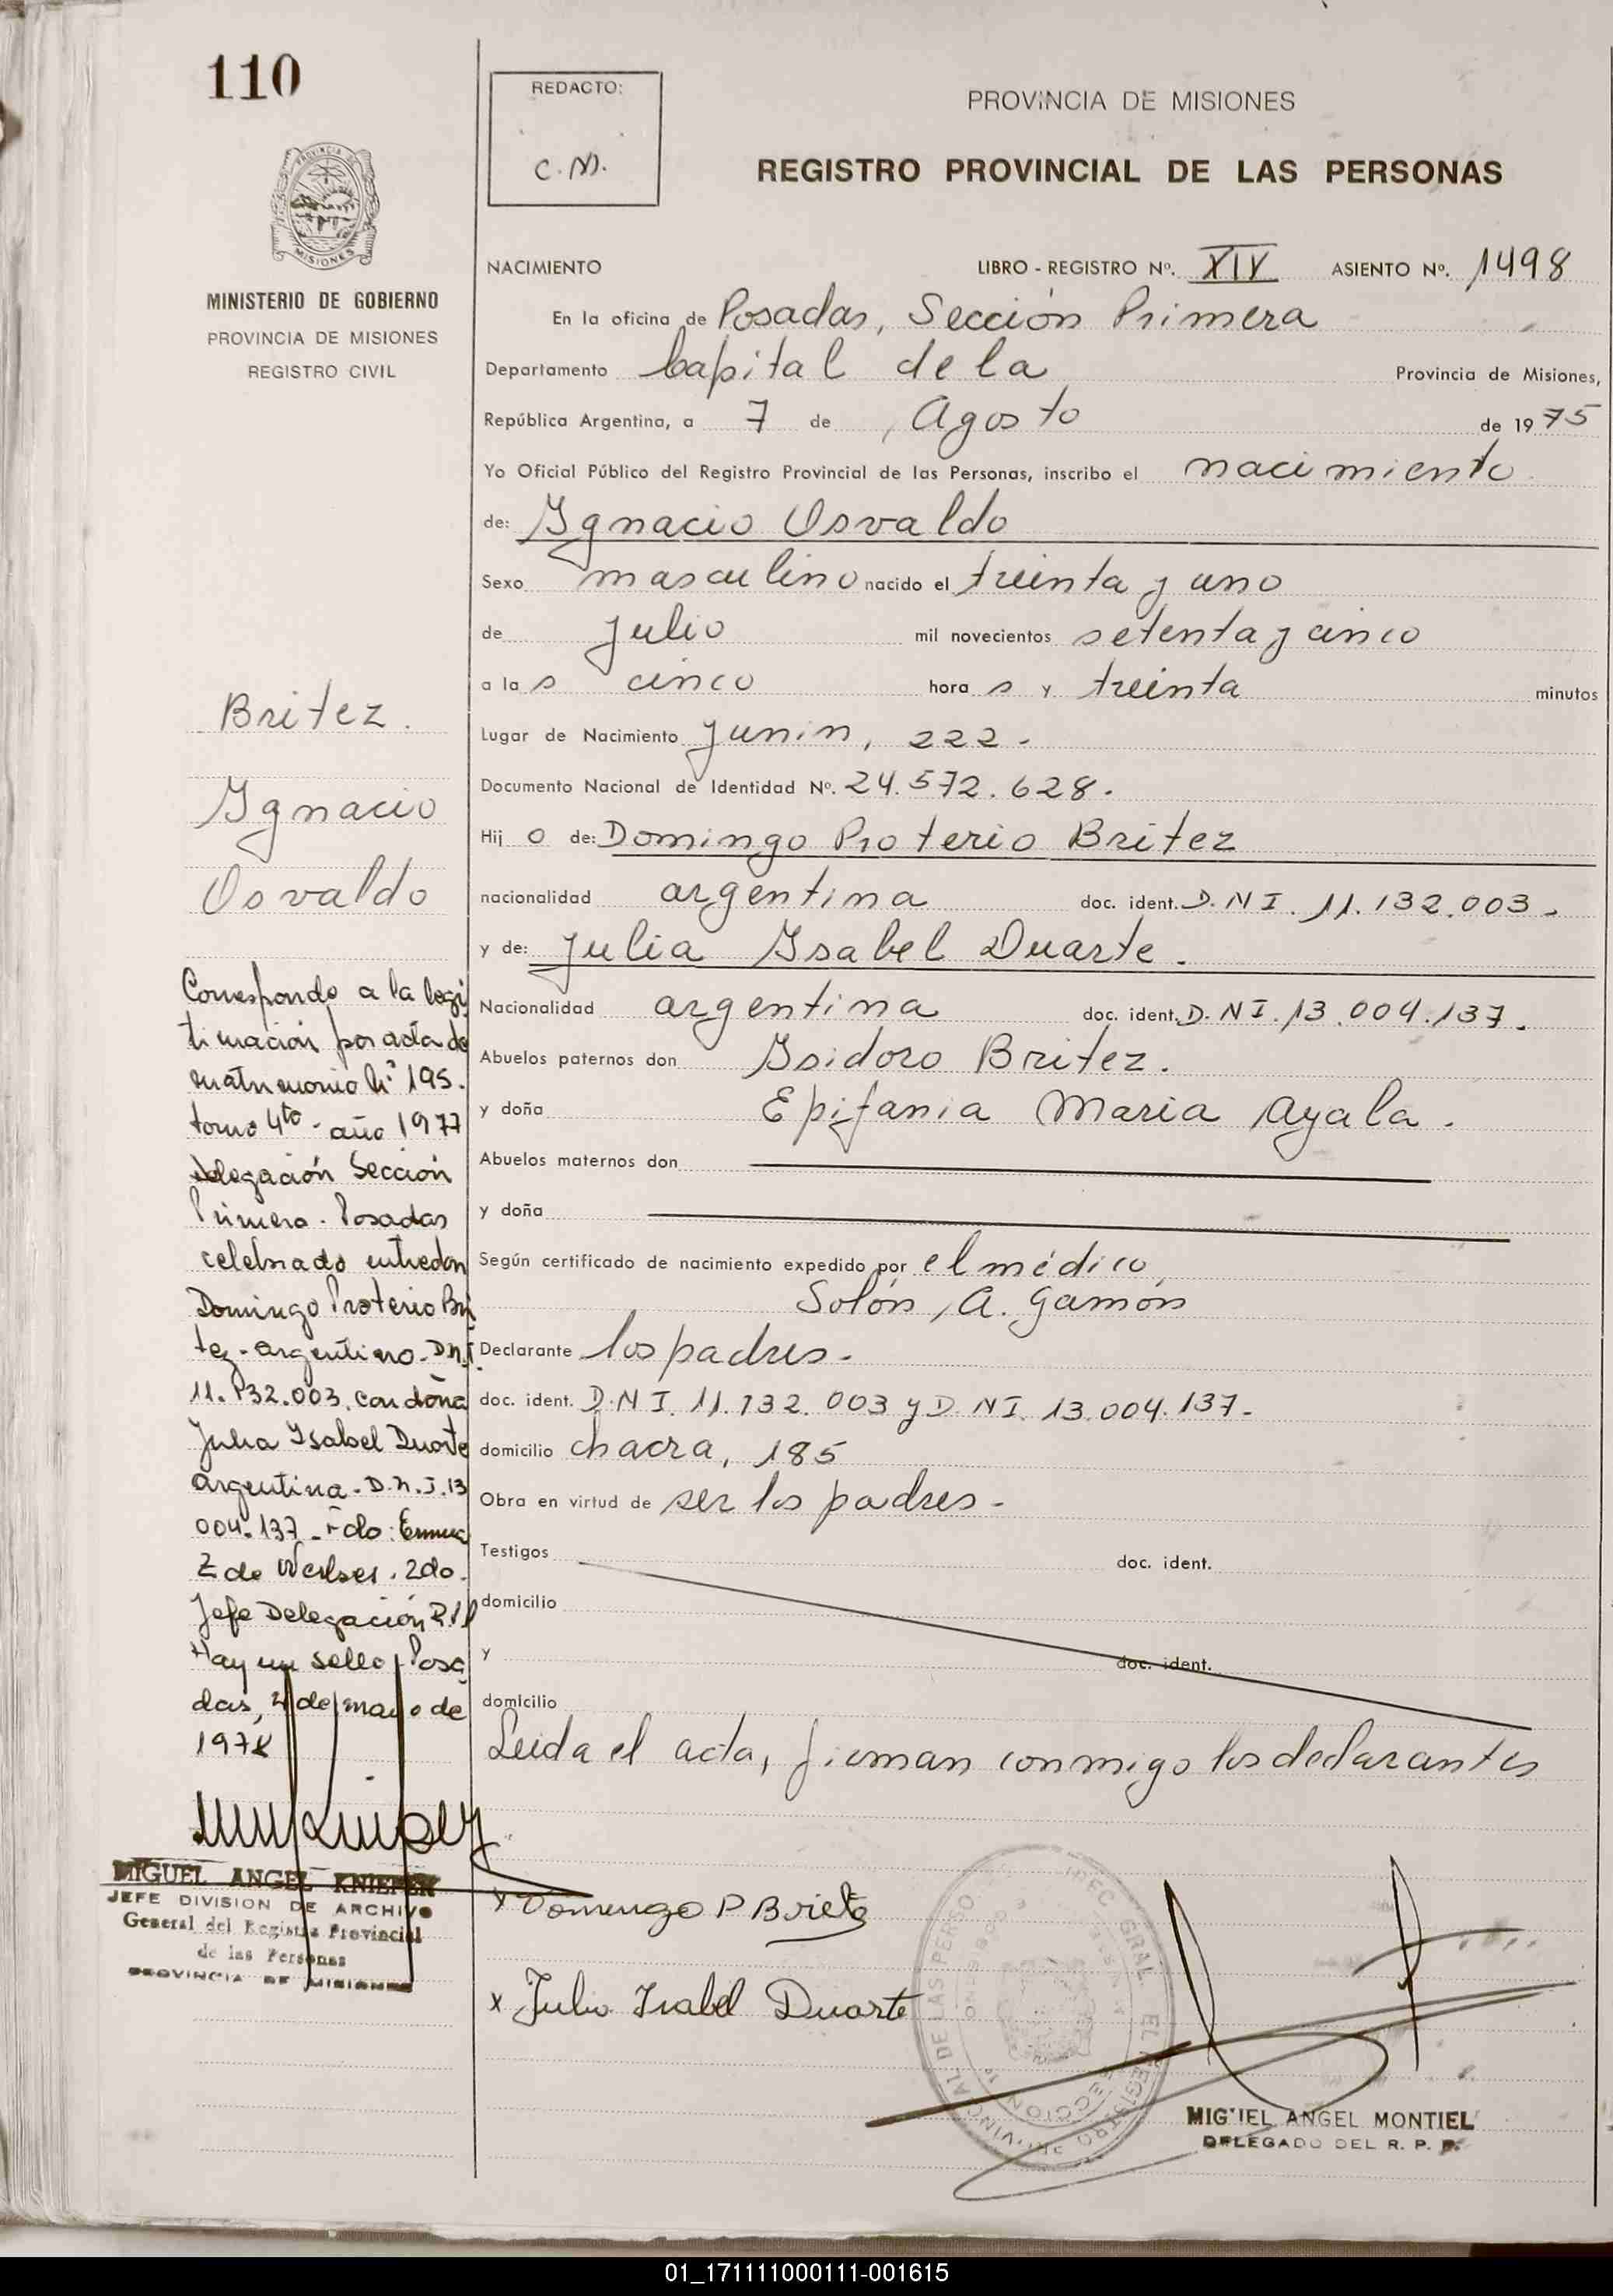 110
REDACTO:
C.M.
PROVINCIA DE MISIONES
REGISTRO PROVINCIAL DE LAS PERSONAS
PROVINCIA DE
MISIONES
MINISTERIO DE GOBIERNO
PROVINCIA DE MISIONES
REGISTRO CIVIL
NACIMIENTO LIBRO - REGISTRO Nº. XIV ASIENTO Nº. 1498
En la oficina de Posadas, Sección Primera
Departamento Capital de la Provincia de Misiones,
República Argentina, a 7 de Agosto de 1975
Yo Oficial Público del Registro Provincial de las Personas, inscribo el nacimiento
de: Ygnacio Osvaldo
Sexo masculino nacido el treinta y uno
de Julio mil novecientos setenta y cinco
a la s cinco hora s y treinta minutos
Lugar de Nacimiento Junin, 222.-
Documento Nacional de Identidad Nº. 24.572.628.
Hij o de: Domingo Proterio Britez
nacionalidad argentina doc. ident. D.N I. 11.132.003.
y de: Julia Ysabel Duarte.
Nacionalidad argentina doc. ident. D. N I. 13.004.137.
Abuelos paternos don Ysidoro Britez.
y doña Epifania Maria Ayala.
Abuelos maternos don
y doña
Según certificado de nacimiento expedido por el médico,
Solón, A. Gamón
Declarante los padres.
doc. ident. D.N I. 11.132.003 y D. N I. 13.004.137.
domicilio chacra, 185
Obra en virtud de ser los padres.
Testigos doc. ident.
domicilio
y doc. ident.
domicilio
Leida el acta, firman conmigo los declarantes
Britez.
Ygnacio
Osvaldo
Corresponde a la legi
timación por acta de
matrimonio Nº 195.
tomo 4to - año 1977
delegación Sección
Primera. Posadas
celebrado entre don
Domingo Proterio Bri
tez - argentino - D.N.I.
11.132.003. con doña
Julia Ysabel Duarte
argentina - D.N.I. 13
004.137 - Fdo: Emma
Z de . 2do.
Jefe Delegación
Hay un sello. Posa
das, de mayo de
1978
MIGUEL ANGEL KNIEPER
JEFE DIVISION DE ARCHIVO
General del Registro Provincial
de las Personas
PROVINCIA DE MISIONES
x Domingo P Britez
x Julia Isabel Duarte
MIGUEL ANGEL MONTIEL
DELEGADO DEL R. P. P.
01_171111000111-001615